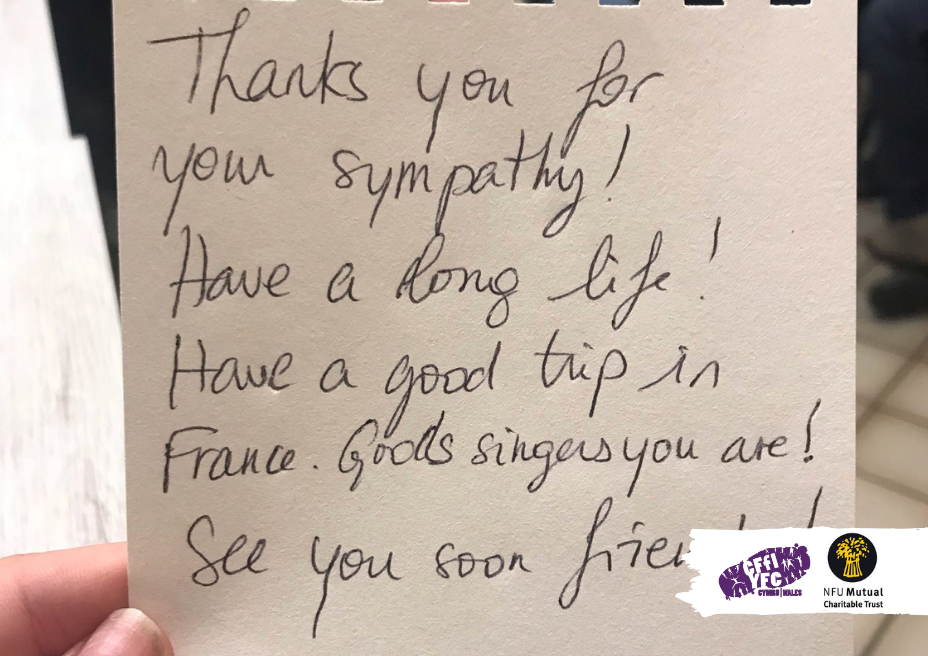 Thanks you for
your sympathy!
Have a long life!
Have a good trip in
France. Goods singers you are!
See you soon
CFfI
YFC
CYMRU|WALES
NFU Mutual
Charitable Trust